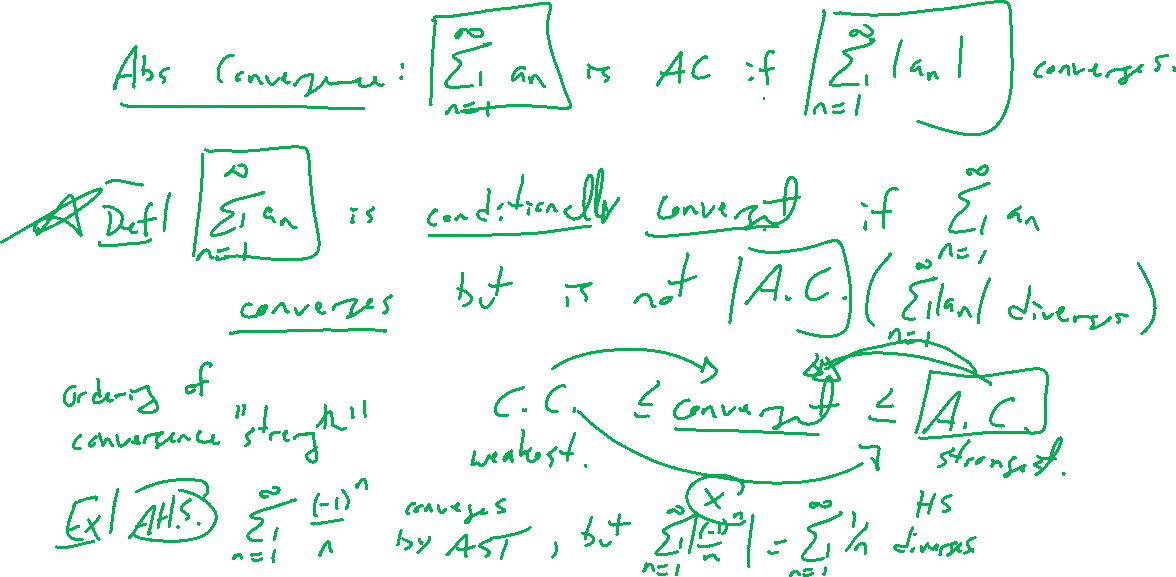 Abs Convergence: ∞∑n=1 an is AC if ∞∑n=1 |an| converges.
Def| ∞∑n=1 an is conditionally convergent if ∞∑n=1 an
converges but is not A.C. (∞∑n=1 |an| diverges)
Ordering of convergence "strength"
C.C. ≤ convergent ≤ A.C.
weakest. strongest.
Ex| A.H.S. ∞∑n=1 (-1)^n/n converges by AST, but ∞∑n=1 |(-1)^n/n| = ∞∑n=1 1/n HS diverges